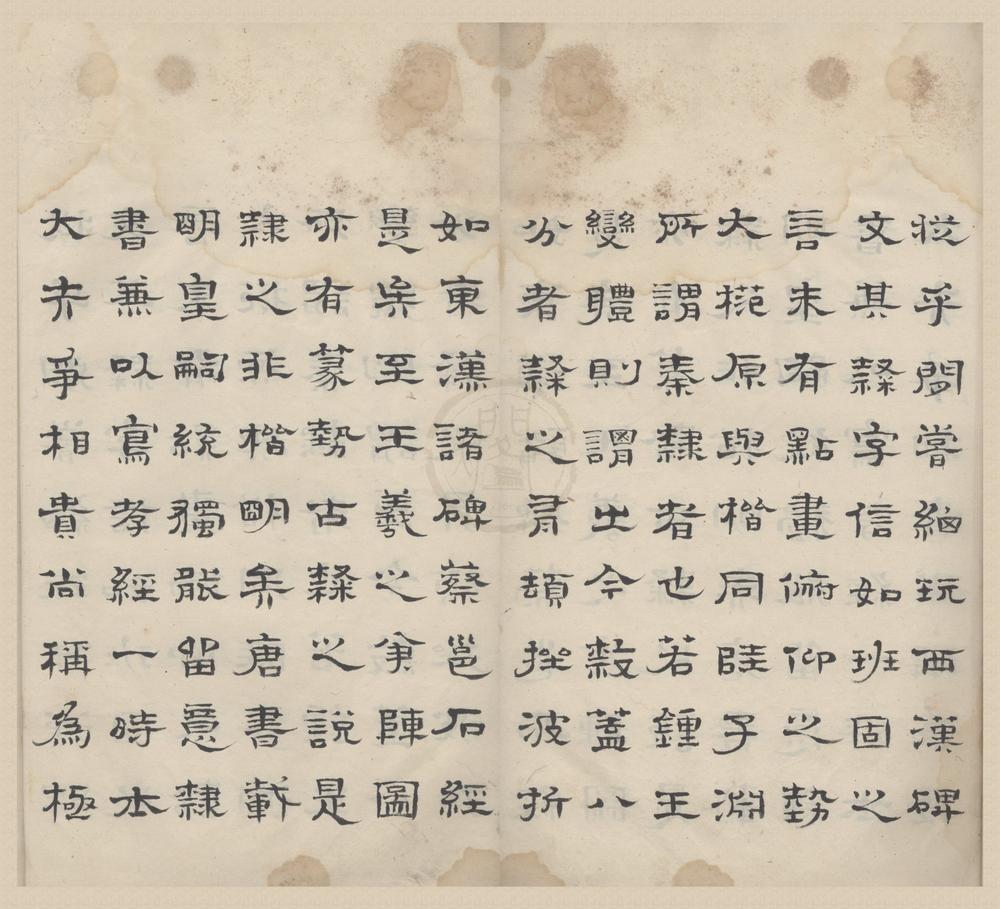 從乎閒嘗紬玩西漢碑
文其隸字信如班固之
言未有點畫俯仰之勢
大槩原與楷同陸子淵
所謂秦隸者也若鍾王
變體則謂㞢今隸蓋八
分者隸之有頓挫波折
如東漢諸碑蔡邕石經
是矣至王羲之筆陣圖
亦有篆勢古隸之說是
隸之非楷明矣唐書載
明皇嗣統獨能留意隸
書兼以寫孝經一時士
大夫爭相貴尚稱為極